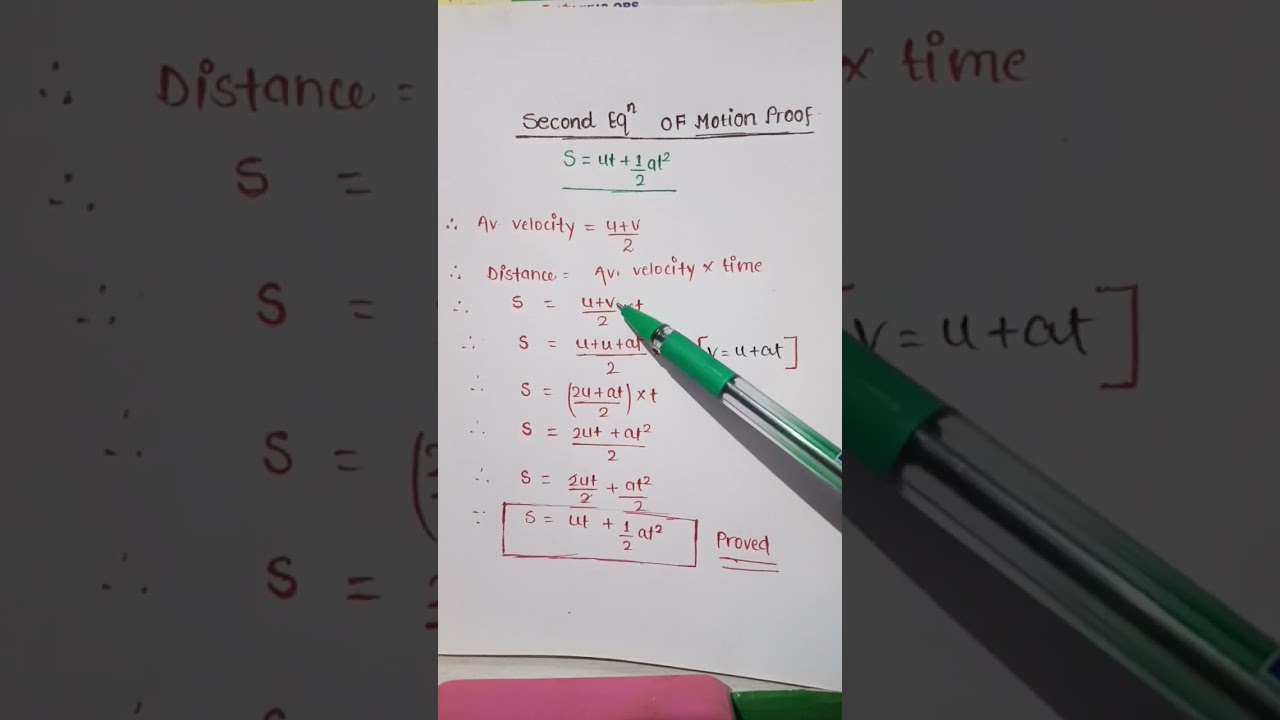 Second Eqⁿ OF Motion Proof
S = ut + 1/2 at²
∴ Av velocity = u+v/2
∴ Distance = Av. velocity × time
∴ S = u+v/2 × t
∴ S = u+u+at/2 [v = u + at]
∴ S = (2u+at/2) × t
∴ S = 2ut + at²/2
∴ S = 2ut/2 + at²/2
∵ S = ut + 1/2 at² Proved